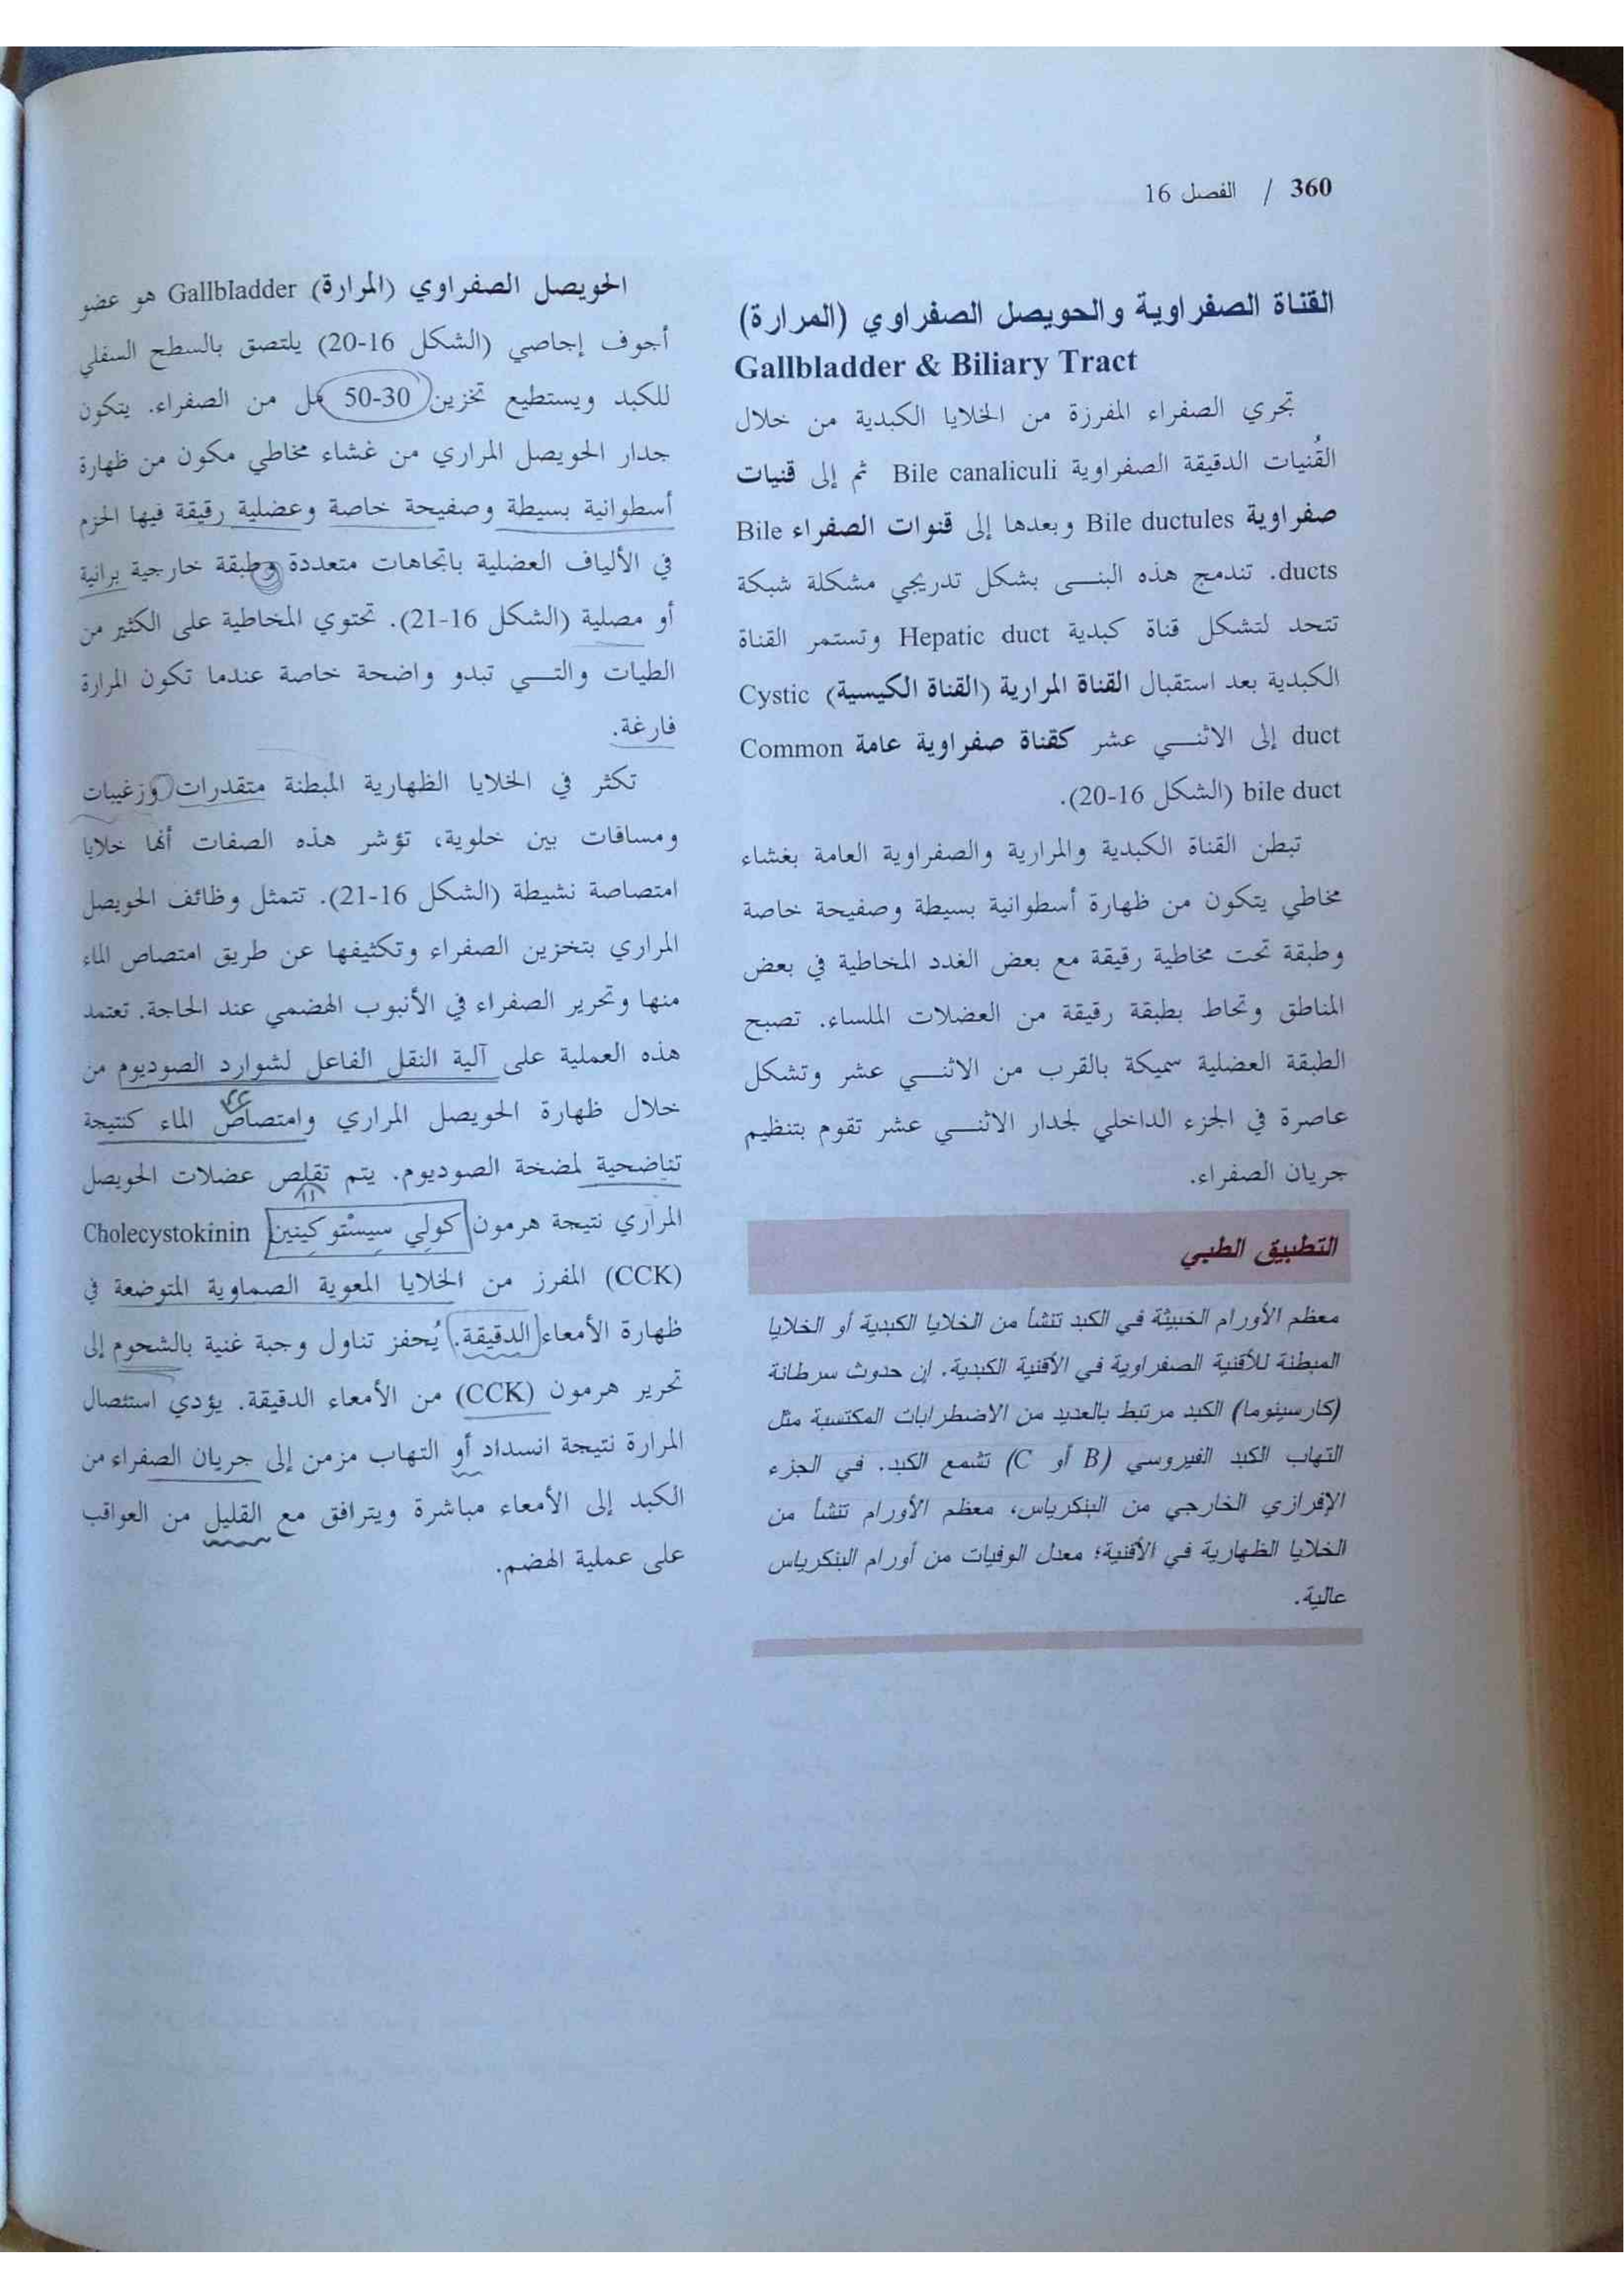 360 / الفصل 16
القناة الصفراوية والحويصل الصفراوي (المرارة)
Gallbladder & Biliary Tract
تجري الصفراء المفرزة من الخلايا الكبدية من خلال
القُنيات الدقيقة الصفراوية Bile canaliculi ثم إلى قنيات
صفراوية Bile ductules وبعدها إلى قنوات الصفراء Bile
ducts. تندمج هذه البنى بشكل تدريجي مشكلة شبكة
تتحد لتشكل قناة كبدية Hepatic duct وتستمر القناة
الكبدية بعد استقبال القناة المرارية (القناة الكيسية) Cystic
duct إلى الاثني عشر كقناة صفراوية عامة Common
bile duct (الشكل 16-20).
تبطن القناة الكبدية والمرارية والصفراوية العامة بغشاء
مخاطي يتكون من ظهارة أسطوانية بسيطة وصفيحة خاصة
وطبقة تحت مخاطية رقيقة مع بعض الغدد المخاطية في بعض
المناطق وتحاط بطبقة رقيقة من العضلات الملساء. تصبح
الطبقة العضلية سميكة بالقرب من الاثني عشر وتشكل
عاصرة في الجزء الداخلي لجدار الاثني عشر تقوم بتنظيم
جريان الصفراء.
التطبيق الطبي
معظم الأورام الخبيثة في الكبد تنشأ من الخلايا الكبدية أو الخلايا
المبطنة للأقنية الصفراوية في الأقنية الكبدية. إن حدوث سرطانة
(كارسينوما) الكبد مرتبط بالعديد من الاضطرابات المكتسبة مثل
التهاب الكبد الفيروسي (B أو C) تشمع الكبد. في الجزء
الإفرازي الخارجي من البنكرياس، معظم الأورام تنشأ من
الخلايا الظهارية في الأقنية؛ معدل الوفيات من أورام البنكرياس
عالية.
الحويصل الصفراوي (المرارة) Gallbladder هو عضو
أجوف إجاصي (الشكل 16-20) يلتصق بالسطح السفلي
للكبد ويستطيع تخزين 30-50 مل من الصفراء. يتكون
جدار الحويصل المراري من غشاء مخاطي مكون من ظهارة
أسطوانية بسيطة وصفيحة خاصة وعضلية رقيقة فيها الحزم
في الألياف العضلية باتجاهات متعددة وطبقة خارجية برانية
أو مصلية (الشكل 16-21). تحتوي المخاطية على الكثير من
الطيات والتي تبدو واضحة خاصة عندما تكون المرارة
فارغة.
تكثر في الخلايا الظهارية المبطنة متقدرات وزغيبات
ومسافات بين خلوية، تؤشر هذه الصفات أنها خلايا
امتصاصة نشيطة (الشكل 16-21). تتمثل وظائف الحويصل
المراري بتخزين الصفراء وتكثيفها عن طريق امتصاص الماء
منها وتحرير الصفراء في الأنبوب الهضمي عند الحاجة. تعتمد
هذه العملية على آلية النقل الفاعل لشوارد الصوديوم من
خلال ظهارة الحويصل المراري وامتصاص الماء كنتيجة
تناضحية لمضخة الصوديوم. يتم تقلص عضلات الحويصل
المراري نتيجة هرمون كولي سيستوكينين Cholecystokinin
(CCK) المفرز من الخلايا المعوية الصماوية المتوضعة في
ظهارة الأمعاء الدقيقة. يُحفز تناول وجبة غنية بالشحوم إلى
تحرير هرمون (CCK) من الأمعاء الدقيقة. يؤدي استئصال
المرارة نتيجة انسداد أو التهاب مزمن إلى جريان الصفراء من
الكبد إلى الأمعاء مباشرة ويترافق مع القليل من العواقب
على عملية الهضم.